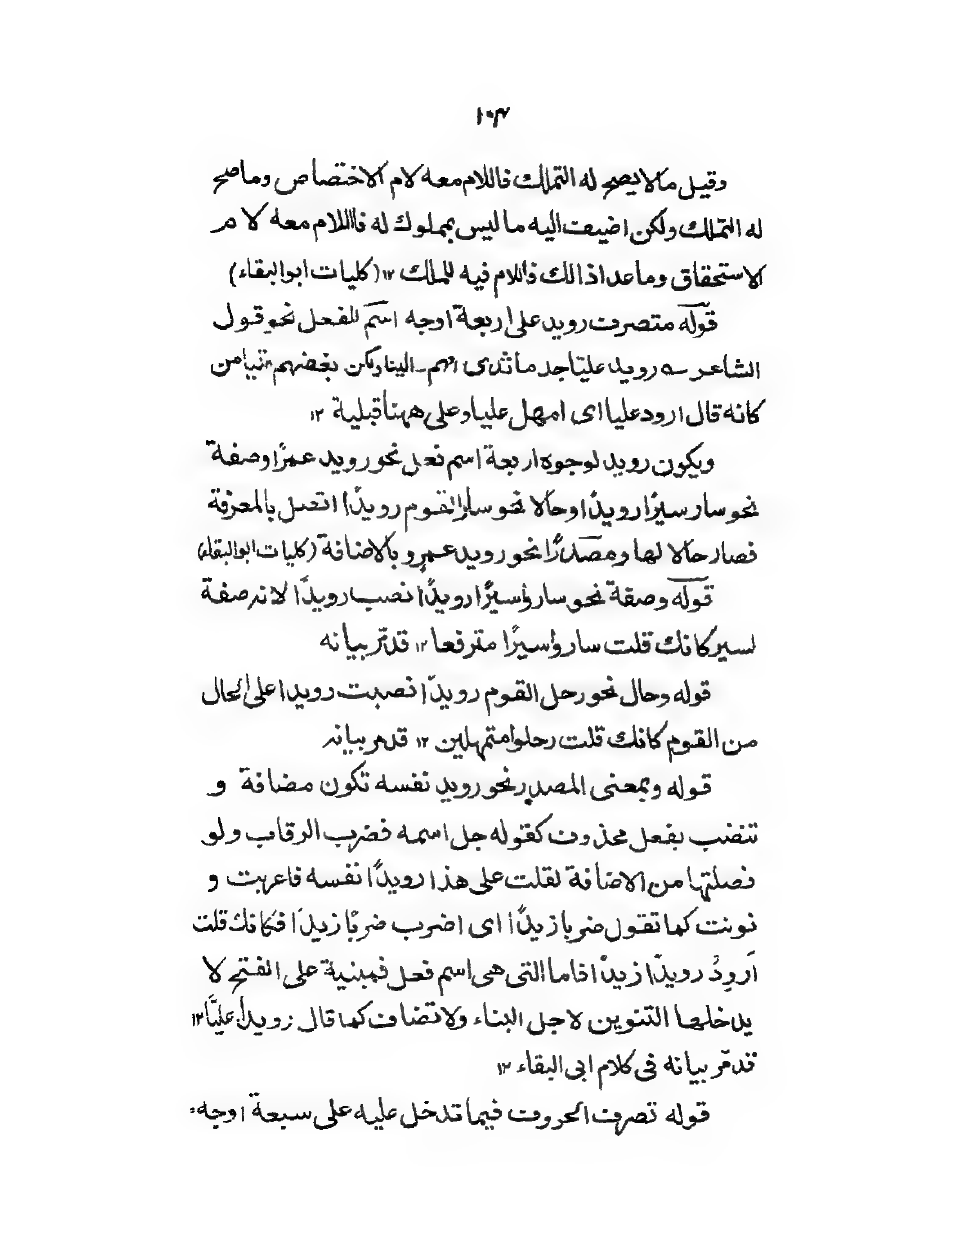 ۱۰۴
وقيل مالا يصح له التملك فاللام معه لام الاختصاص وما صح
له التملك ولكن اضيفت اليه ما ليس بمملوك له فااللام معه لا م
الاستحقاق وما عدا ذالك فاللام فيه للملك ۱۲ (كليات ابوالبقاء)
قوله متصرف رويد على اربعة اوجه اسم للفعل نحو قول
الشاعر ؎ رويد عليا جد ما ثدى امهم ـ الينا ولكن بغضهم متيامن
كانه قال ارود عليا اى امهل عليا وعلى ههنا قبلية ۱۲
ويكون رويد لوجوه اربعة اسم فعل نحو رويد عمرًا وصفة
نحو سار سيرًا رويدًا وحالا نحو سار القوم رويدًا اتصل بالمعرفة
فصار حالا لها ومصدرًا نحو رويد عمرو بالاضافة (كليات ابو البقاء)
قوله وصفة نحو ساروا سيرًا رويدًا نصب رويدًا لانه صفة
لسير كانك قلت ساروا سيرًا مترفعا ۱۲ قد مّر بيانه
قوله وحال نحو رحل القوم رويدًا نصبت رويدا على الحال
من القوم كانك قلت رحلوا متمهلين ۱۲ قد مر بيانه
قوله وبمعنى المصدر نحو رويد نفسه تكون مضافة و
تنضب بفعل محذوف كقوله جل اسمه فضرب الرقاب ولو
فصلتها من الاضافة لقلت على هذا رويدًا نفسه فاعربت و
نونت كما تقول ضربا زيدًا اى اضرب ضربًا زيدًا فكانك قلت
اَرودُ رويدًا زيدًا فاما التى هى اسم فعل فمبنية على الفتح لا
يدخلها التنوين لاجل البناء ولا تضاف كما قال رويدًا عليًّا ۱۲
قد مّر بيانه فى كلام ابى البقاء ۱۲
قوله تصرف الحروف فيما تدخل عليه على سبعة اوجه: